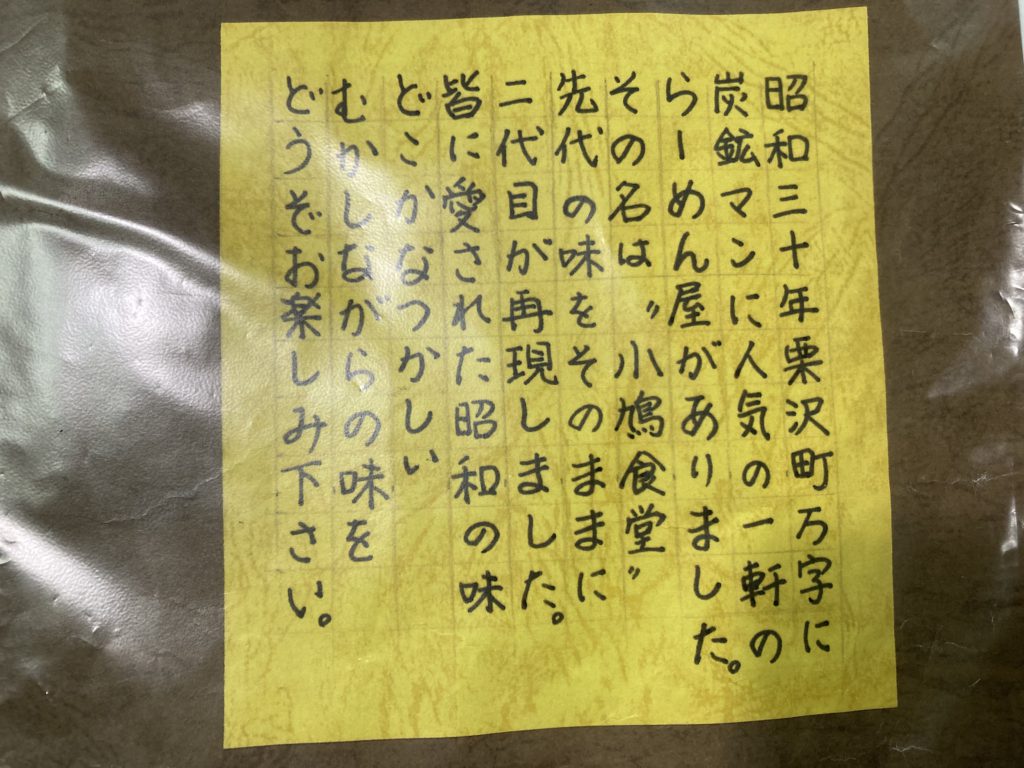 昭和三十年栗沢町万字に
炭鉱マンに人気の一軒の
らーめん屋がありました。
その名は〝小鳩食堂〟
先代の味をそのままに
二代目が再現しました。
皆に愛された昭和の味
どこかなつかしい
むかしながらの味を
どうぞお楽しみ下さい。